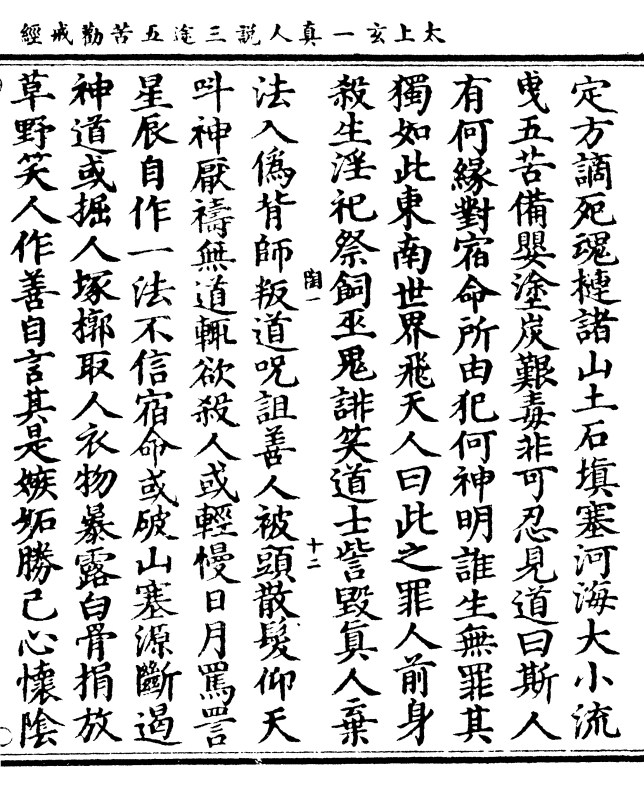 太上玄一真人說三途五苦勸戒經
定方謫死魂槤諸山土石塡塞河海大小流
曳五苦備嬰塗炭艱毒非可忍見道曰斯人
有何緣對宿命所由犯何神明誰生無罪其
獨如此東南世界飛天人曰此之罪人前身
殺生淫祀祭飼巫鬼誹笑道士訾毀眞人棄
陶一
十二
法入僞背師叛道呪詛善人被頭散髮仰天
叫神厭禱無道輒欲殺人或輕慢日月罵詈
星辰自作一法不信宿命或破山塞源斷遏
神道或掘人塚槨取人衣物暴露白骨捐放
草野笑人作善自言其是嫉妬勝己心懷陰